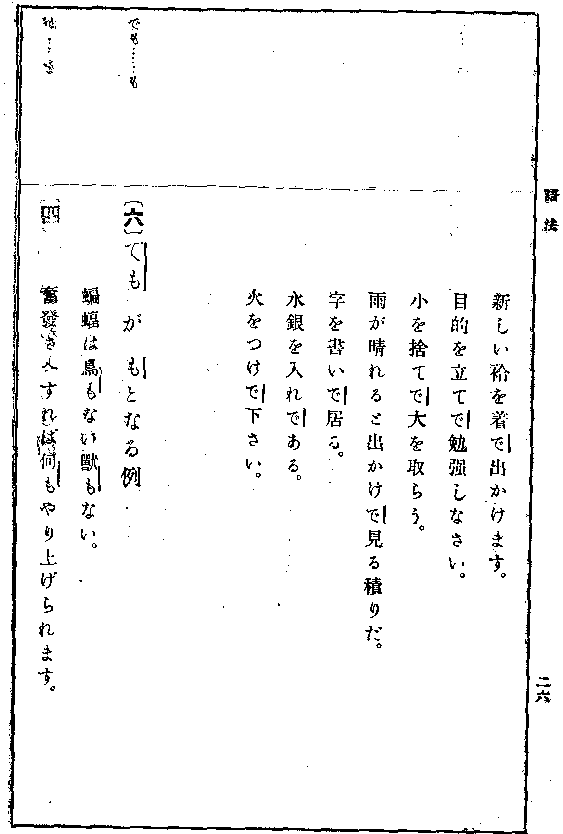 語法
二六
新しい袷を着で出かけます。
目的を立てで勉强しなさい。
小を捨てで大を取らう。
雨が晴れると出かけで見る積りだ。
字を書いで居る。
水銀を入れである。
火をつけで下さい。
でも……も
〔六〕でも が もとなる例
蝙蝠は鳥もない獸もない。
四
奮發さへすれば何もやり上げられます。